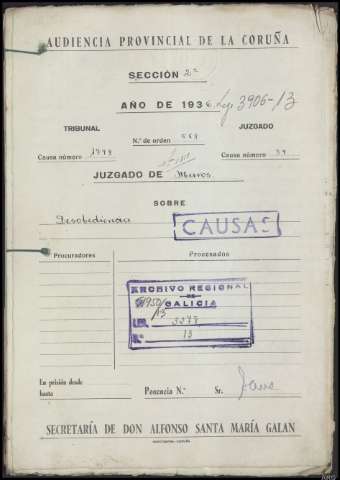 AUDIENCIA PROVINCIAL DE LA CORUÑA
SECCIÓN 2ª
AÑO DE 1936 Leg. 3906-13
TRIBUNAL JUZGADO
N.º de orden
Causa número Causa número
JUZGADO DE Muros.
SOBRE
Desobediencia
CAUSAS
Procuradores Procesados
ARCHIVO REGIONAL
DE
GALICIA
13
En prisión desde
hasta Ponencia N.º Sr.
SECRETARÍA DE DON ALFONSO SANTA MARÍA GALAN